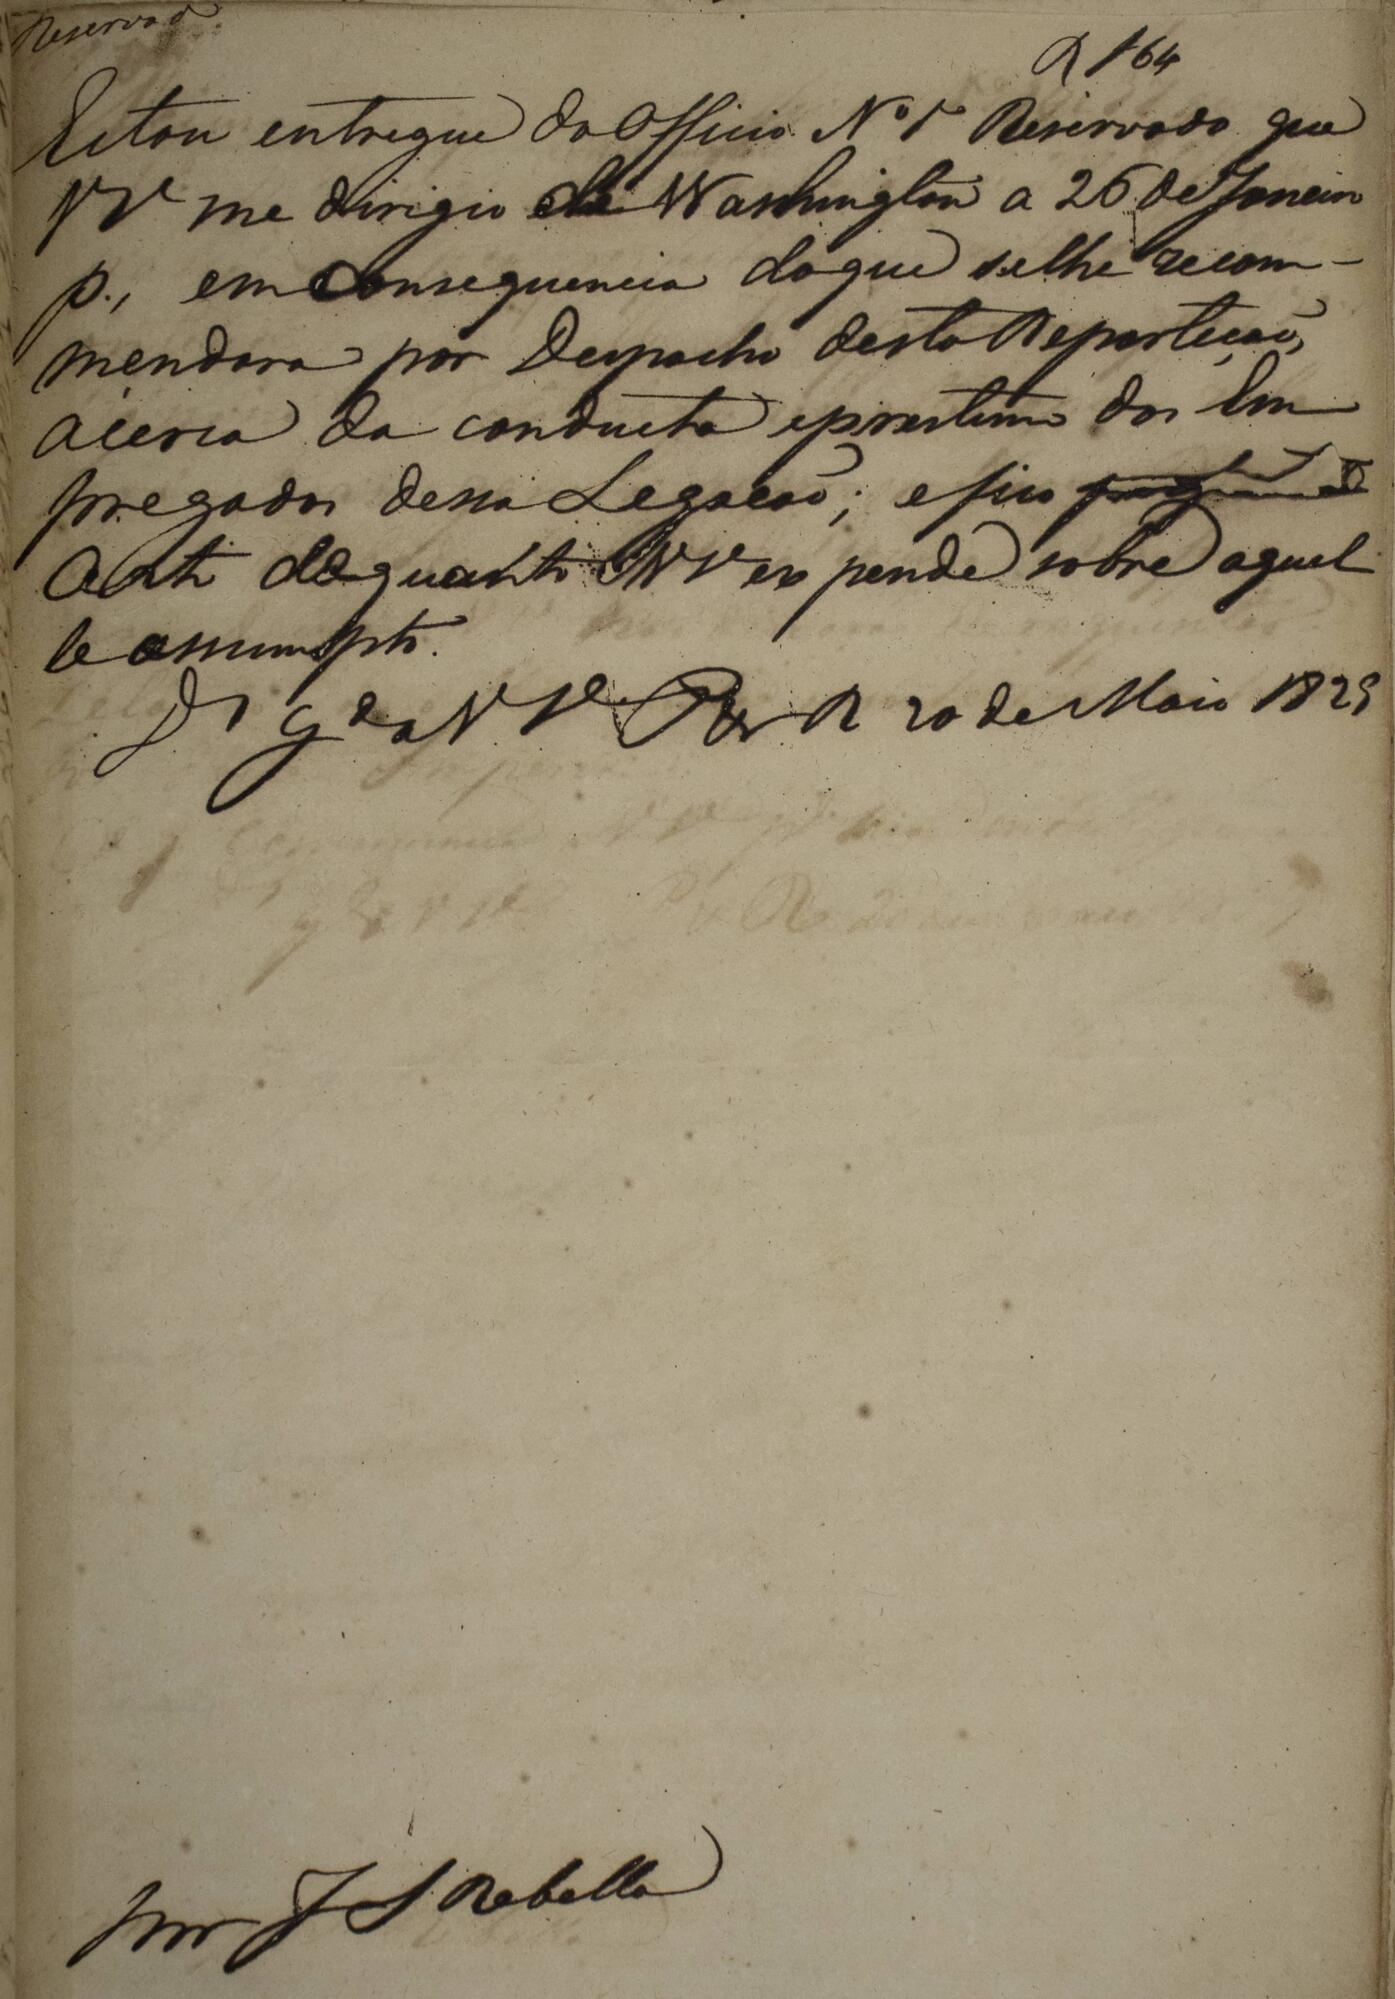 Reservado
R 164
Estou entregue do Officio Nº 1º Reservado que
VSª me dirigio de Washington a 26 de Janeiro
p., em consequencia do que se lhe recom-
mendara por Despacho desta Repartição,
ácerca da conducta e prestimo dos Em
pregados dessa Legação; e fico
de quanto VSª expende sobre aquel
le assumpto.
Ds Gde a VSª R 20 de Maio 1829
Snr J S Rebello